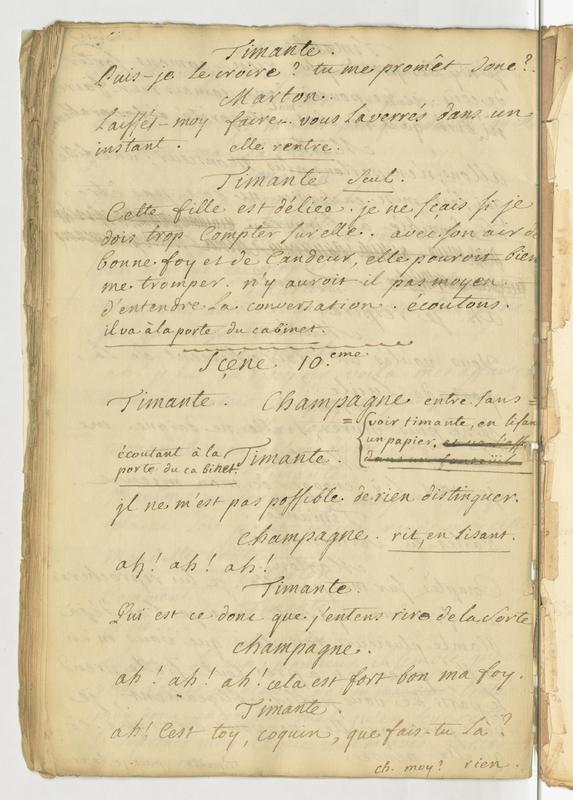 Timante.
Puis-je le croire? tu me promêt donc?
Marton.
Laissés-moy faire. vous la verrés dans un
instant. elle rentre.
Timante seul.
Cette fille est déliée. je ne sçais si je
dois trop Compter sur elle. avec son air de
bonne foy et de Candeur, elle pouroit bien
me tromper. n'y auroit il pas moyen
d'entendre la conversation. écoutons.
il va à la porte du cabinet.
Scéne 10.eme
Timante. Champagne entre sans =
= voir timante, en lisant
un papier, et va s'ass
dans un fauteüil
écoutant à la
porte du cabinet. Timante.
jl ne m'est pas possible de rien distinguer.
champagne. rit, en lisant.
ah! ah! ah!
Timante.
Qui est ce donc que j'entens rire de la sorte
champagne.
ah! ah! ah! cela est fort bon ma foy.
Timante.
ah! C'est toy, coquin, que fais-tu là?
ch. moy? rien.